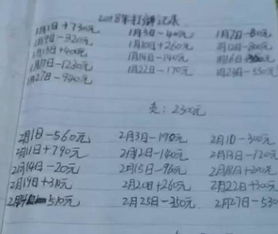 2018年打牌记录
1月1日+730元 1月3日-40元 1月7日-80元
1月9日-320元 1月10日+260元 1月12日-800元
1月13日+400元 1月14日-140元 1月16日
1月17日-1230元 1月22日-170元 1月23日-550元
1月27日-940元
2300元
2月1日-560元 2月3日-190元 2月10-340元
2月11日+790元 2月12日-140元 2月13日-120元
2月14日-20元 2月15日-960元 2月18日+200元
2月19日+310元 2月20日+260元 2月22日+300元
510元 2月25日-350元 2月27日-530